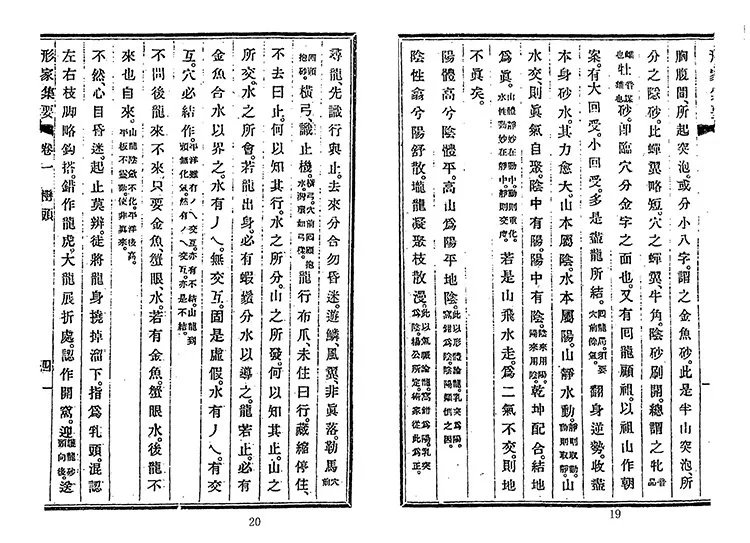 形家集要
胸腹間所起突泡。或分小八字。謂之金魚砂。此是半山突泡、所
分之陰砂。比蟬翼略短。穴之蟬翼、牛角。陰砂刷開。總謂之牝音品
牡音謀雄也砂。即臨穴分金字之面也。又有囘龍顧祖。以祖山作朝
案。有大囘受。小囘受。多是盡龍所結。囘龍局。須要穴前餘氣。翻身逆勢。收盡
本身砂水。其力愈大。山本屬陰。水本屬陽。山靜水動。靜則取動。動則取靜。山
水交。則眞氣自聚。陰中有陽。陽中有陰。陰來用陽。陽來用陰。乾坤配合。結地
爲眞。山體靜妙在動中。動則重化。水性動妙在靜中。靜則交度。若是山飛水走。爲二氣不交。則地
不眞矣。
陽體高分陰體平。高山爲陽平地陰。此以形體論龍。乳突爲陽。窩鉗爲陰。
陰性翕兮陽舒散。壠龍凝聚枝散漫。此以氣脈論龍。窩鉗爲陽。乳突爲陰。楊公所定。術家從此爲正。
19
尋龍先識行與止。去來分合勿昏迷。遊鱗、風翼非眞落。勒馬穴前
四顧抱砂。橫弓識止機。橫弓。穴前四顧抱水灣環如弓樣。龍行布爪、未住曰行。藏縮停住、
不去曰止。何以知其行。水之所分。山之所發何以知其止。山之
所交。水之所會。若龍出身。必有蝦鬚分水以導之。龍若止。必有
金魚合水以界之。水有丿乀。無交互。固是虛假。水有丿乀。有交
互。穴必結作。平洋雖有丿乀交互。亦有不結。山龍到頭無化氣。然有丿乀交互。亦是不結。
不問後龍來不來只要金魚蟹眼、水。若有金魚。蟹眼水。後龍不
來也自來。山龍陰龍不化。平洋後高。平板不靈動。使非眞來。
不然心目昏迷。起止莫辨。徒將龍身撓掉溜下。指爲乳頭。混認
左右枝脚略鈎搭。錯作龍虎。大龍展折處。認作開窩。迎龍砂頭向後。送
形家集要 卷一 巒頭
20